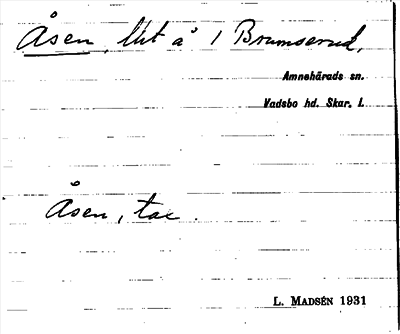 Åsen, lht å 1 Brumserud,
Amnehärads sn.
Vadsbo hd. Skar. l.
Åsen, tax.
L. MADSÉN 1931